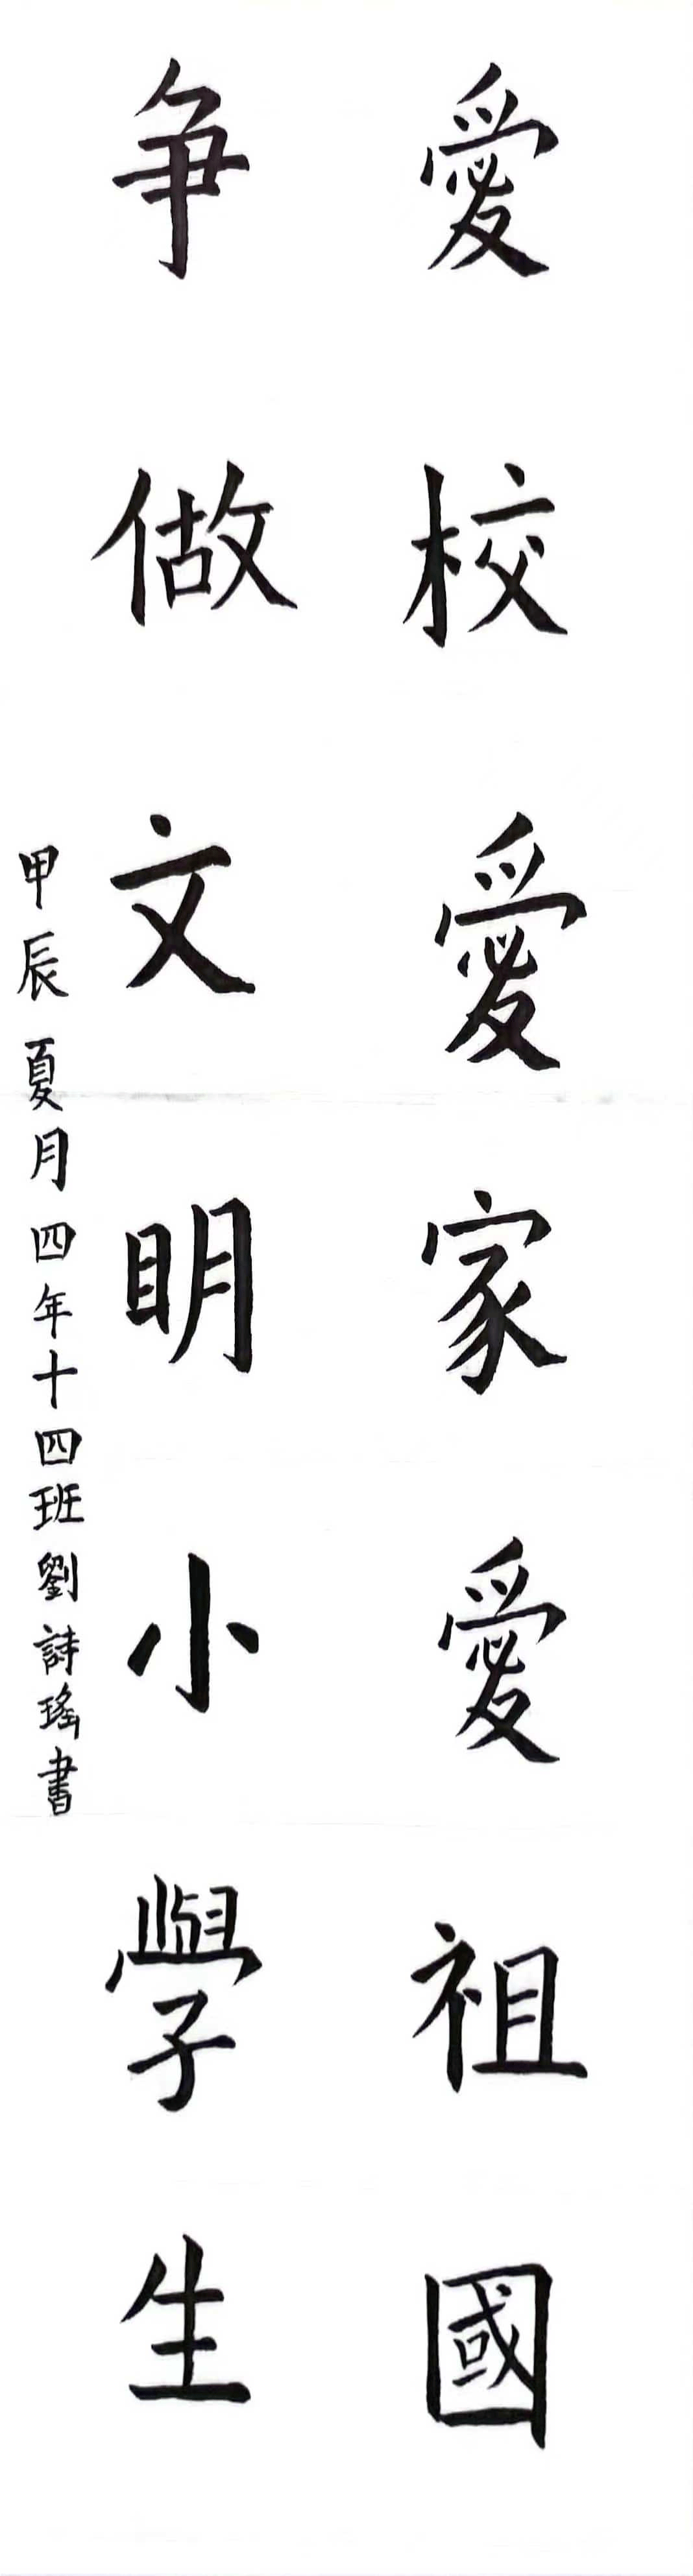 愛校愛家愛祖國
争做文明小學生
甲辰夏月四年十四班劉詩瑤書